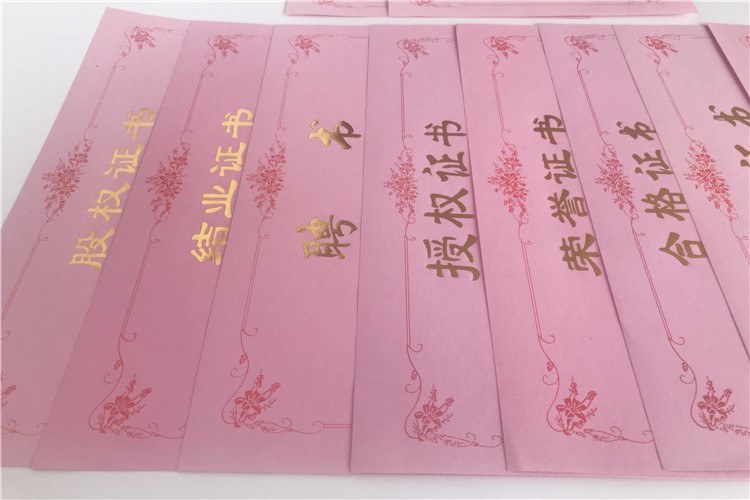 股权证书
结业证书
聘书
授权证书
荣誉证书
合格证书
书